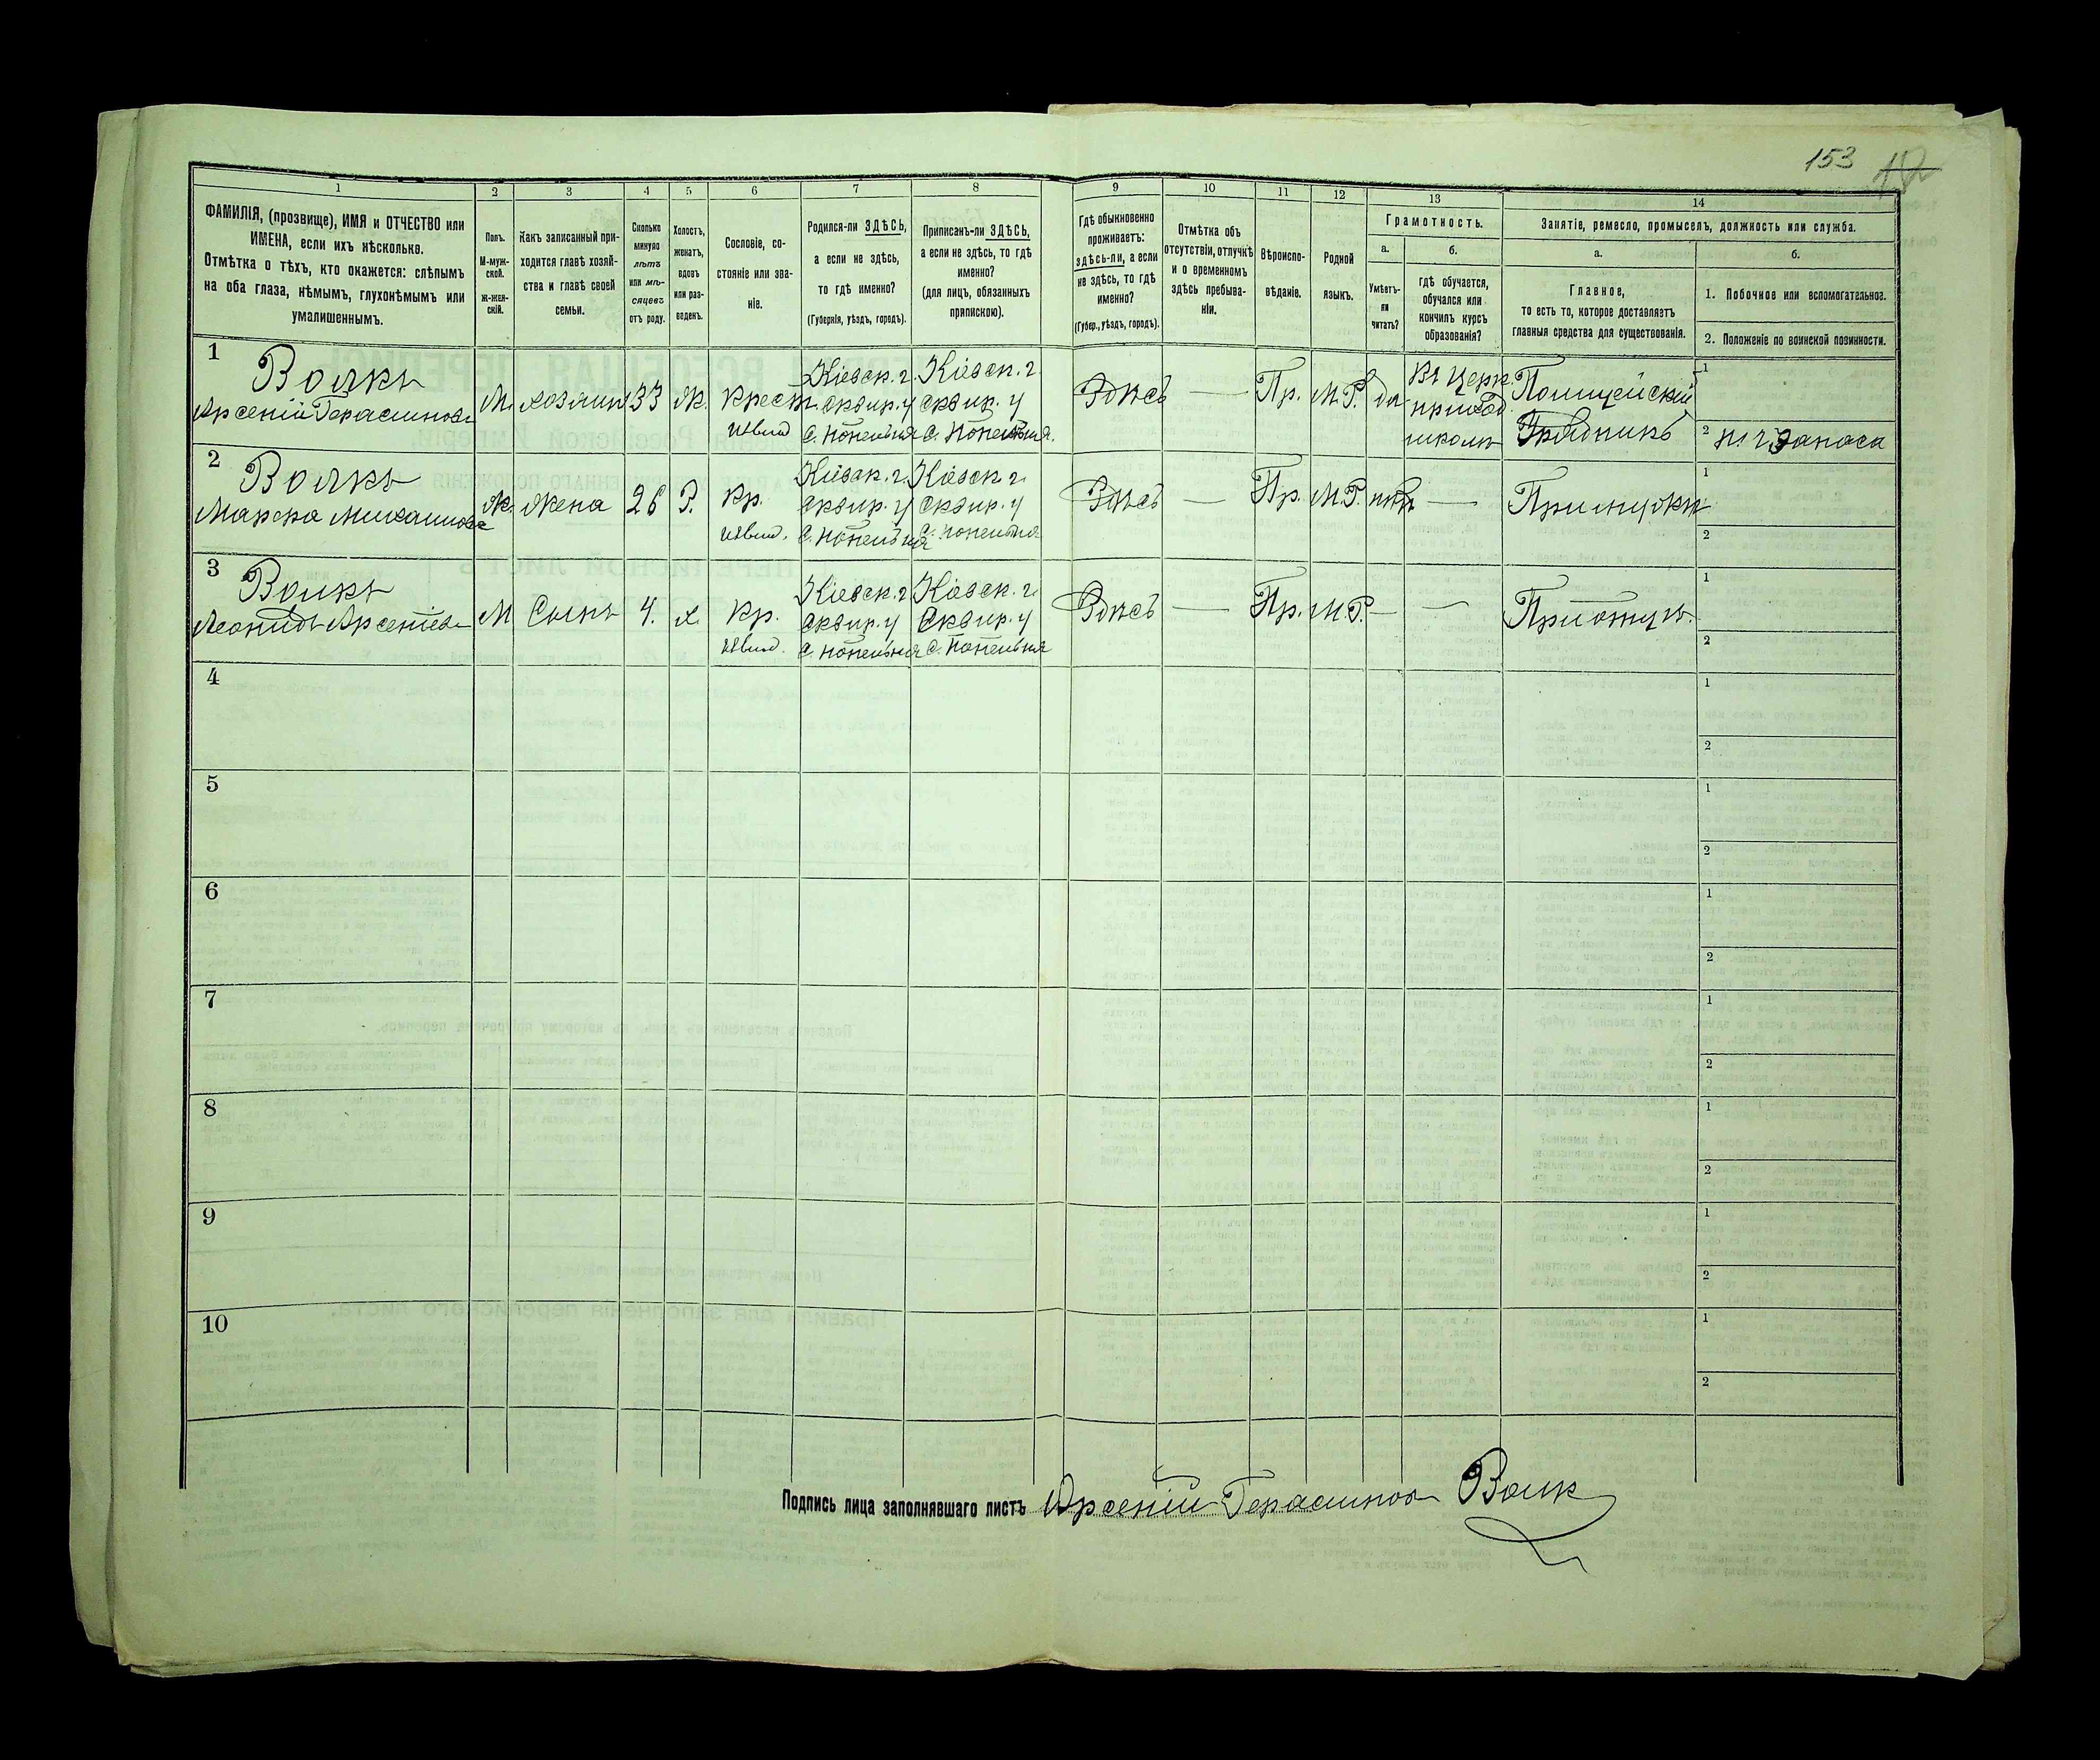 153
1
2
3
4
5
6
7
8
9
10
11
12
13
14
ФАМИЛІЯ, (прозвище), ИМЯ и ОТЧЕСТВО или
ИМЕНА, если ихъ нѣсколько.
Отмѣтка о тѣхъ, кто окажется: слѣпымъ
на оба глаза, нѣмымъ, глухонѣмымъ или
умалишеннымъ.
Полъ.
М-муж-
ской.
Ж-жен-
скій.
Какъ записанный при-
ходится главѣ хозяй-
ства и главѣ своей
семьи.
Сколько
минуло
лѣтъ
или мѣ-
сяцевъ
отъ роду.
Холостъ,
женатъ,
вдовъ
или раз-
веденъ.
Сословіе, со-
стояніе или зва-
ніе.
Родился-ли ЗДѢСЬ,
а если не здѣсь,
то гдѣ именно?
(Губернія, уѣздъ, городъ).
Приписанъ-ли ЗДѢСЬ,
а если не здѣсь, то гдѣ
именно?
(для лицъ, обязанныхъ
припискою).
Гдѣ обыкновенно
проживаетъ:
здѣсь-ли, а если
не здѣсь, то гдѣ
именно?
(Губер., уѣздъ, городъ).
Отмѣтка объ
отсутствіи, отлучкѣ
и о временномъ
здѣсь пребыва-
ніи.
Вѣроиспо-
вѣданіе.
Родной
языкъ.
Грамотность.
а.
Умѣетъ-
ли
читать?
б.
гдѣ обучается,
обучался или
кончилъ курсъ
образованія?
Занятіе, ремесло, промыселъ, должность или служба.
а.
Главное,
то есть то, которое доставляетъ
главныя средства для существованія.
б.
1. Побочное или вспомогательное.
2. Положеніе по воинской повинности.
1
Волкъ
Арсеній Герасимовъ
М.
хозяинъ
33
Ж.
Крест.
Кіевск. г.
Сквир. у
с. Попельня
Кіевск. г.
Сквир. у
с. Попельня.
Здѣсь
—
Пр.
М.Р.
да
Въ церк.
приход.
школѣ
Полицейскій
Урядникъ
1
2
2
Волкъ
Жена
26
Кр.
Кіевск. г.
Сквир. у
с. Попельня
Кіевск. г.
Сквир. у
с. Попельня
Здѣсь
—
Пр.
М.Р.
нѣтъ
—
При мужѣ
1
2
3
Волкъ
Леонидъ Арсеніев
М
Сынъ
4.
х
Кр.
Кіевск. г.
Сквир. у
с. Попельня
Кіевск. г.
Сквир. у
с. Попельня
Здѣсь
—
Пр.
М.Р.
—
—
При отцѣ.
1
2
4
1
2
5
1
2
6
1
2
7
1
2
8
1
2
9
1
2
10
1
2
Подпись лица заполнявшаго листъ Арсеній Герасимов Волк